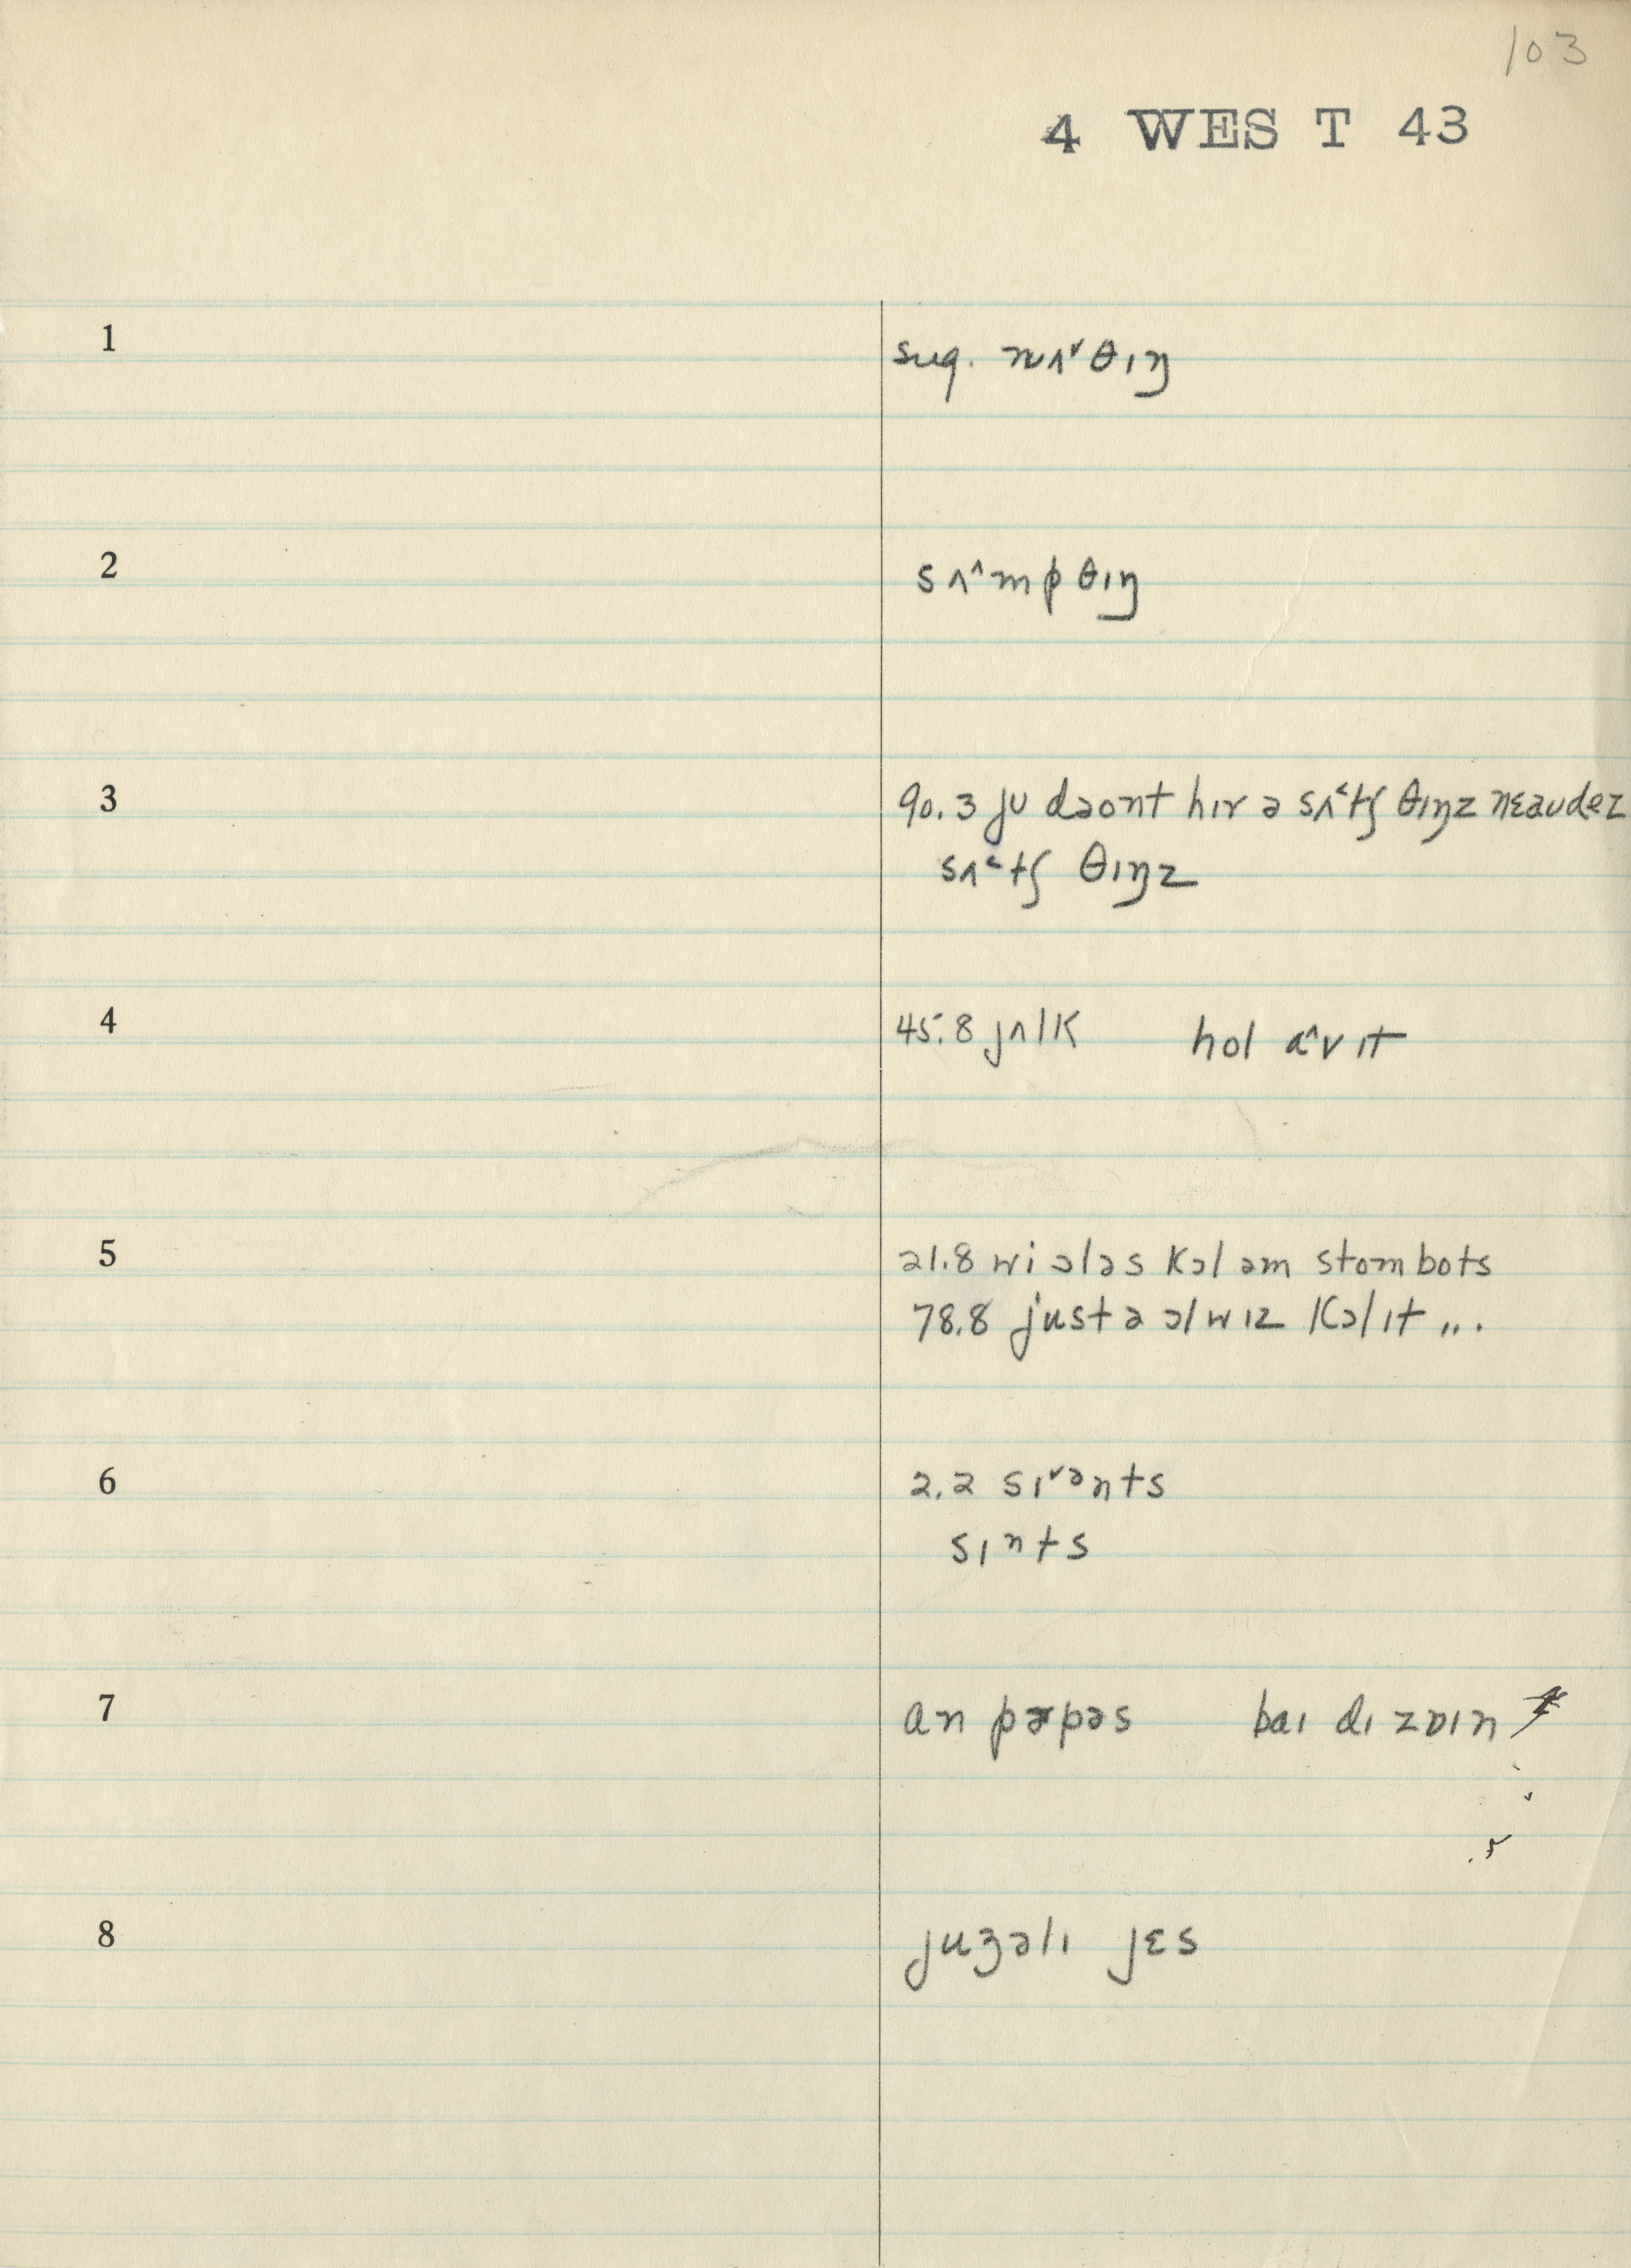 103
4 WEST 43
1 sug. nʌ˅θɪŋ
2 sʌ^mpθɪŋ
3 90.3 ju dəont hɪr ə sʌ˂tʃ θɪŋz nɛaudez
sʌ˂tʃ θɪŋz
4 45.8 jʌlk hol ɑ^v ɪt
5 21.8 wi ɔləs kɔl əm stombots
78.8 justə ɔlwɪz kɔl ɪt ...
6 2.2 sɪ˅ənts
sɪnts
7 an pɚpəs baɪ dɪzɒɪn
8 juʒəlɪ jɛs